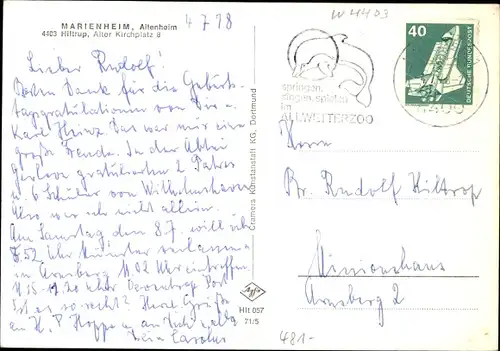 MARIENHEIM, Altenheim
4403 Hiltrup, Alter Kirchplatz 8
4 7 78
W 4403
Lieber Rudolf!
Besten Dank für die Geburts-
tagsgratulationen von Dir u.
Karl Heinz Das war mir eine
große Freude. In der Abtei
Gerleve gratulierten 2 Patres
u. 6 Schüler von Wilhelmshaven
Also war ich nicht allein.
Am Samstag den 8.7. will ich
8.52 Uhr Münster verlassen
in Arnsberg 11 02 Uhr eintreffen
Ist es so recht? Herzl Grüße
an H. P Hoppe u. an Dich
Dein Carolus
Cramers Kunstanstalt KG, Dortmund
Hit 057
71/5
springen,
singen, spielen
im
ALLWETTERZOO
40
DEUTSCHE BUNDESPOST
4400
Herrn
Br. Rudolf Hiltrop
Missionshaus
Arnsberg 2
481-